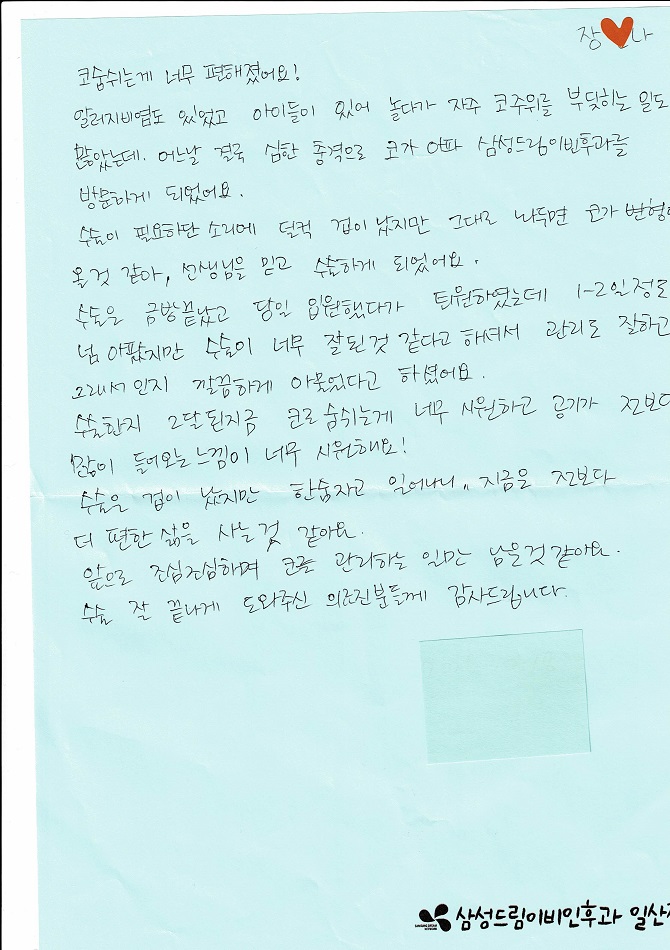 장 나
코숨쉬는게 너무 편해졌어요!
알러지비염도 있었고 아이들이 있어 놀다가 자주 코주위를 부딪히는 일도
많았는데. 어느날 결국 심한 충격으로 코가 아파 삼성드림이빈후과를
방문하게 되었어요.
수술이 필요하단 소리에 덜컥 겁이 났지만 그대로 놔두면 코가 변형이
올것 같아, 선생님을 믿고 수술하게 되었어요.
수술은 금방끝났고 당일 입원했다가 퇴원하였는데 1-2일정도
넘 아팠지만 수술이 너무 잘된것 같다고 하셔서 관리도 잘하고
그래서인지 깔끔하게 아물었다고 하셨어요.
수술한지 2달된지금 코로 숨쉬는게 너무 시원하고 공기가 전보다
많이 들어오는느낌이 너무 시원해요!
수술은 겁이 났지만 한숨자고 일어나니,, 지금은 전보다
더 편한 삶을 사는것 같아요.
앞으로 조심조심하며 코를 관리하는 일만 남은것같아요.
수술 잘 끝나게 도와주신 의료진분들께 감사드립니다.
삼성드림이비인후과 일산